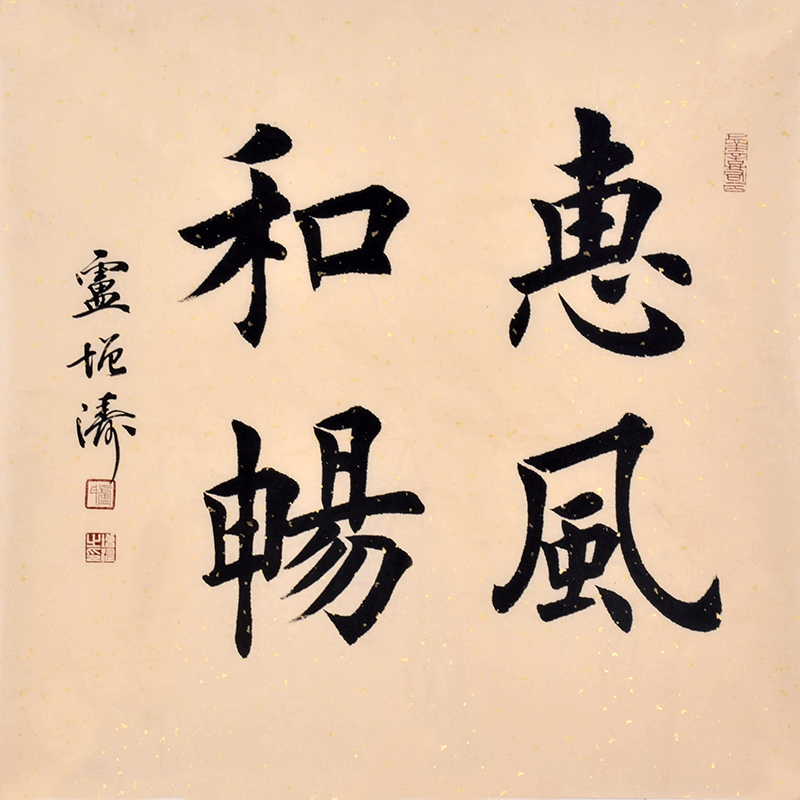 惠風
和暢
盧增濤